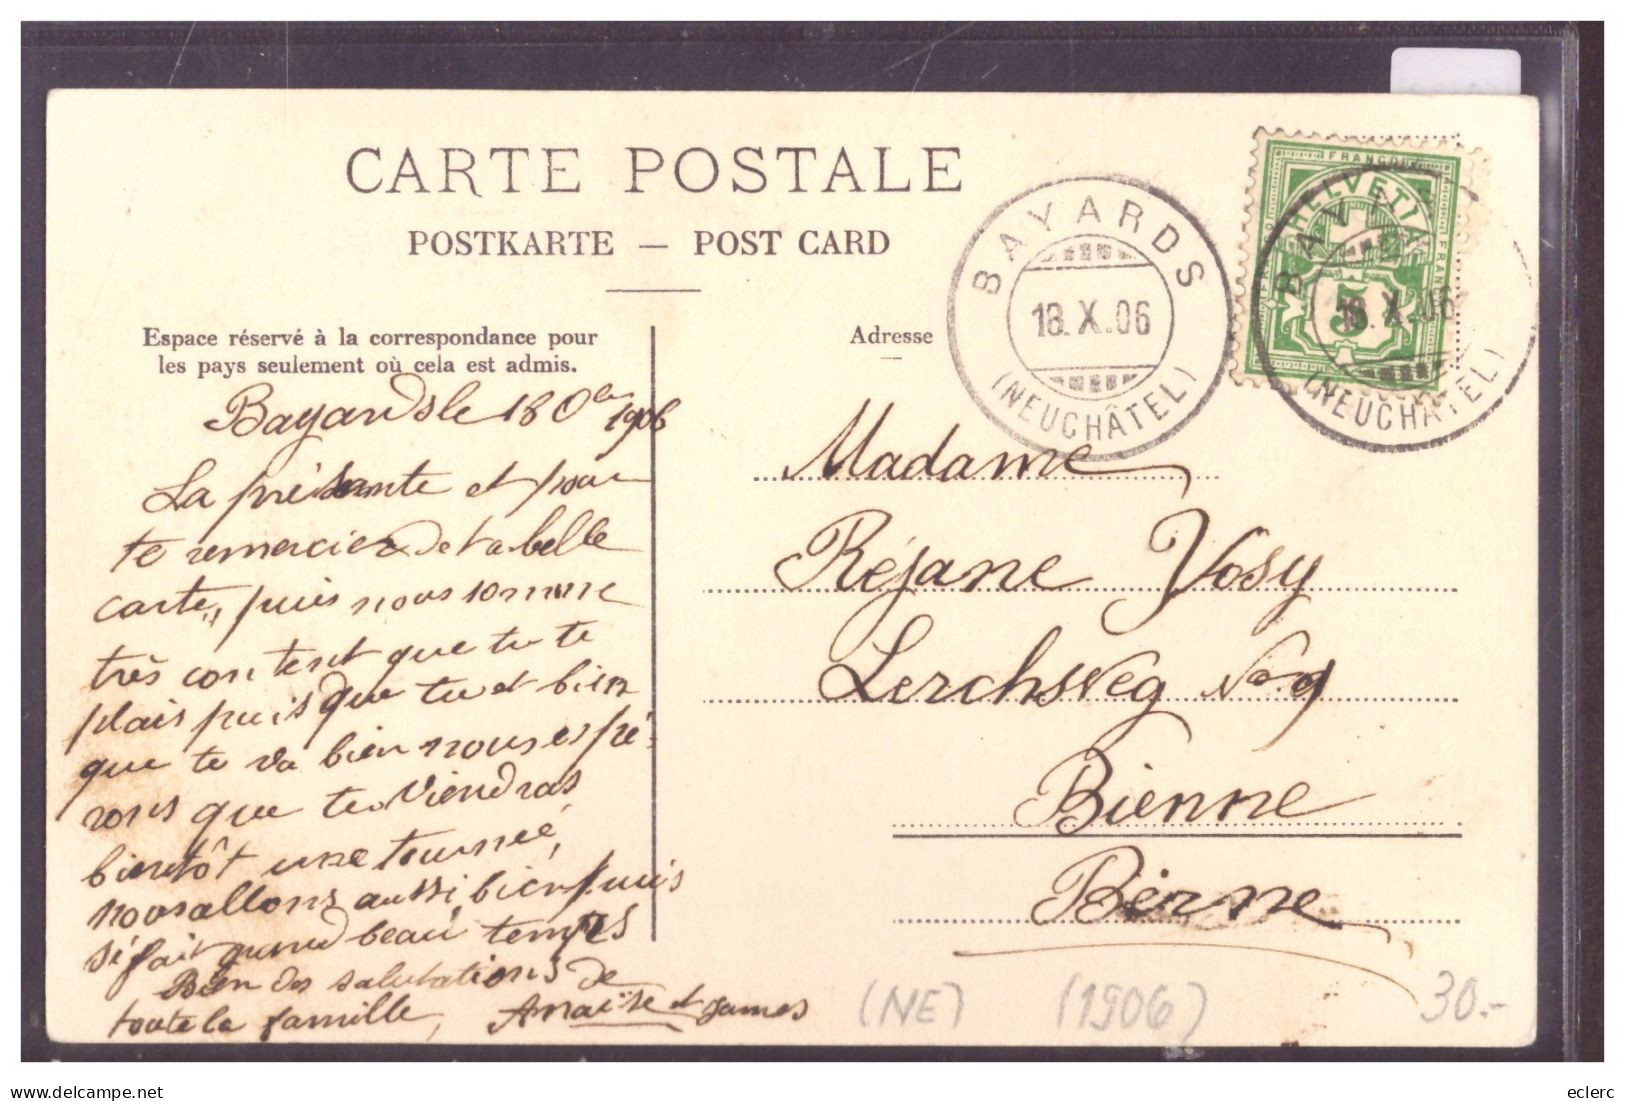 CARTE POSTALE
POSTKARTE — POST CARD
Espace réservé à la correspondance pour
les pays seulement où cela est admis.
Adresse
BAYARDS
18.X.06
(NEUCHÂTEL)
FRANCO
HELVETIA
FRANCO
5
BAYARDS
18.X.06
(NEUCHÂTEL)
Bayards le 18 Obr 1906
La présante et pour
te remercier de ta belle
carte, puis nous somme
très content que tu te
plais puis que tu et bien
que te va bien nous espé-
rons que tu viendras
bientôt une tournée,
nous allons aussi bien puis
si fait quand beau temps
Bien des salutations de
toute la famille, Anaïse et James
Madame
Réjane Vosy
Lerchsveg No. 9
Bienne
Berne
(NE)
(1906)
30.-
eclerc